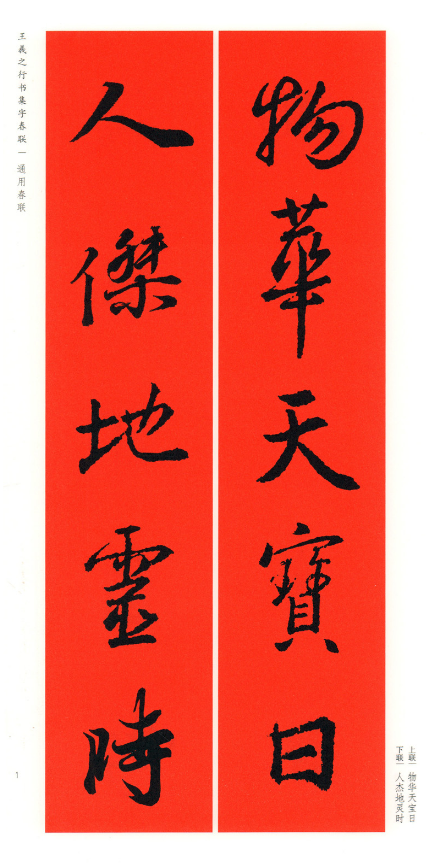 物華天寶日
人傑地靈時
王羲之行书集字春联｜通用春联
上联｜物华天宝日
下联｜人杰地灵时
1